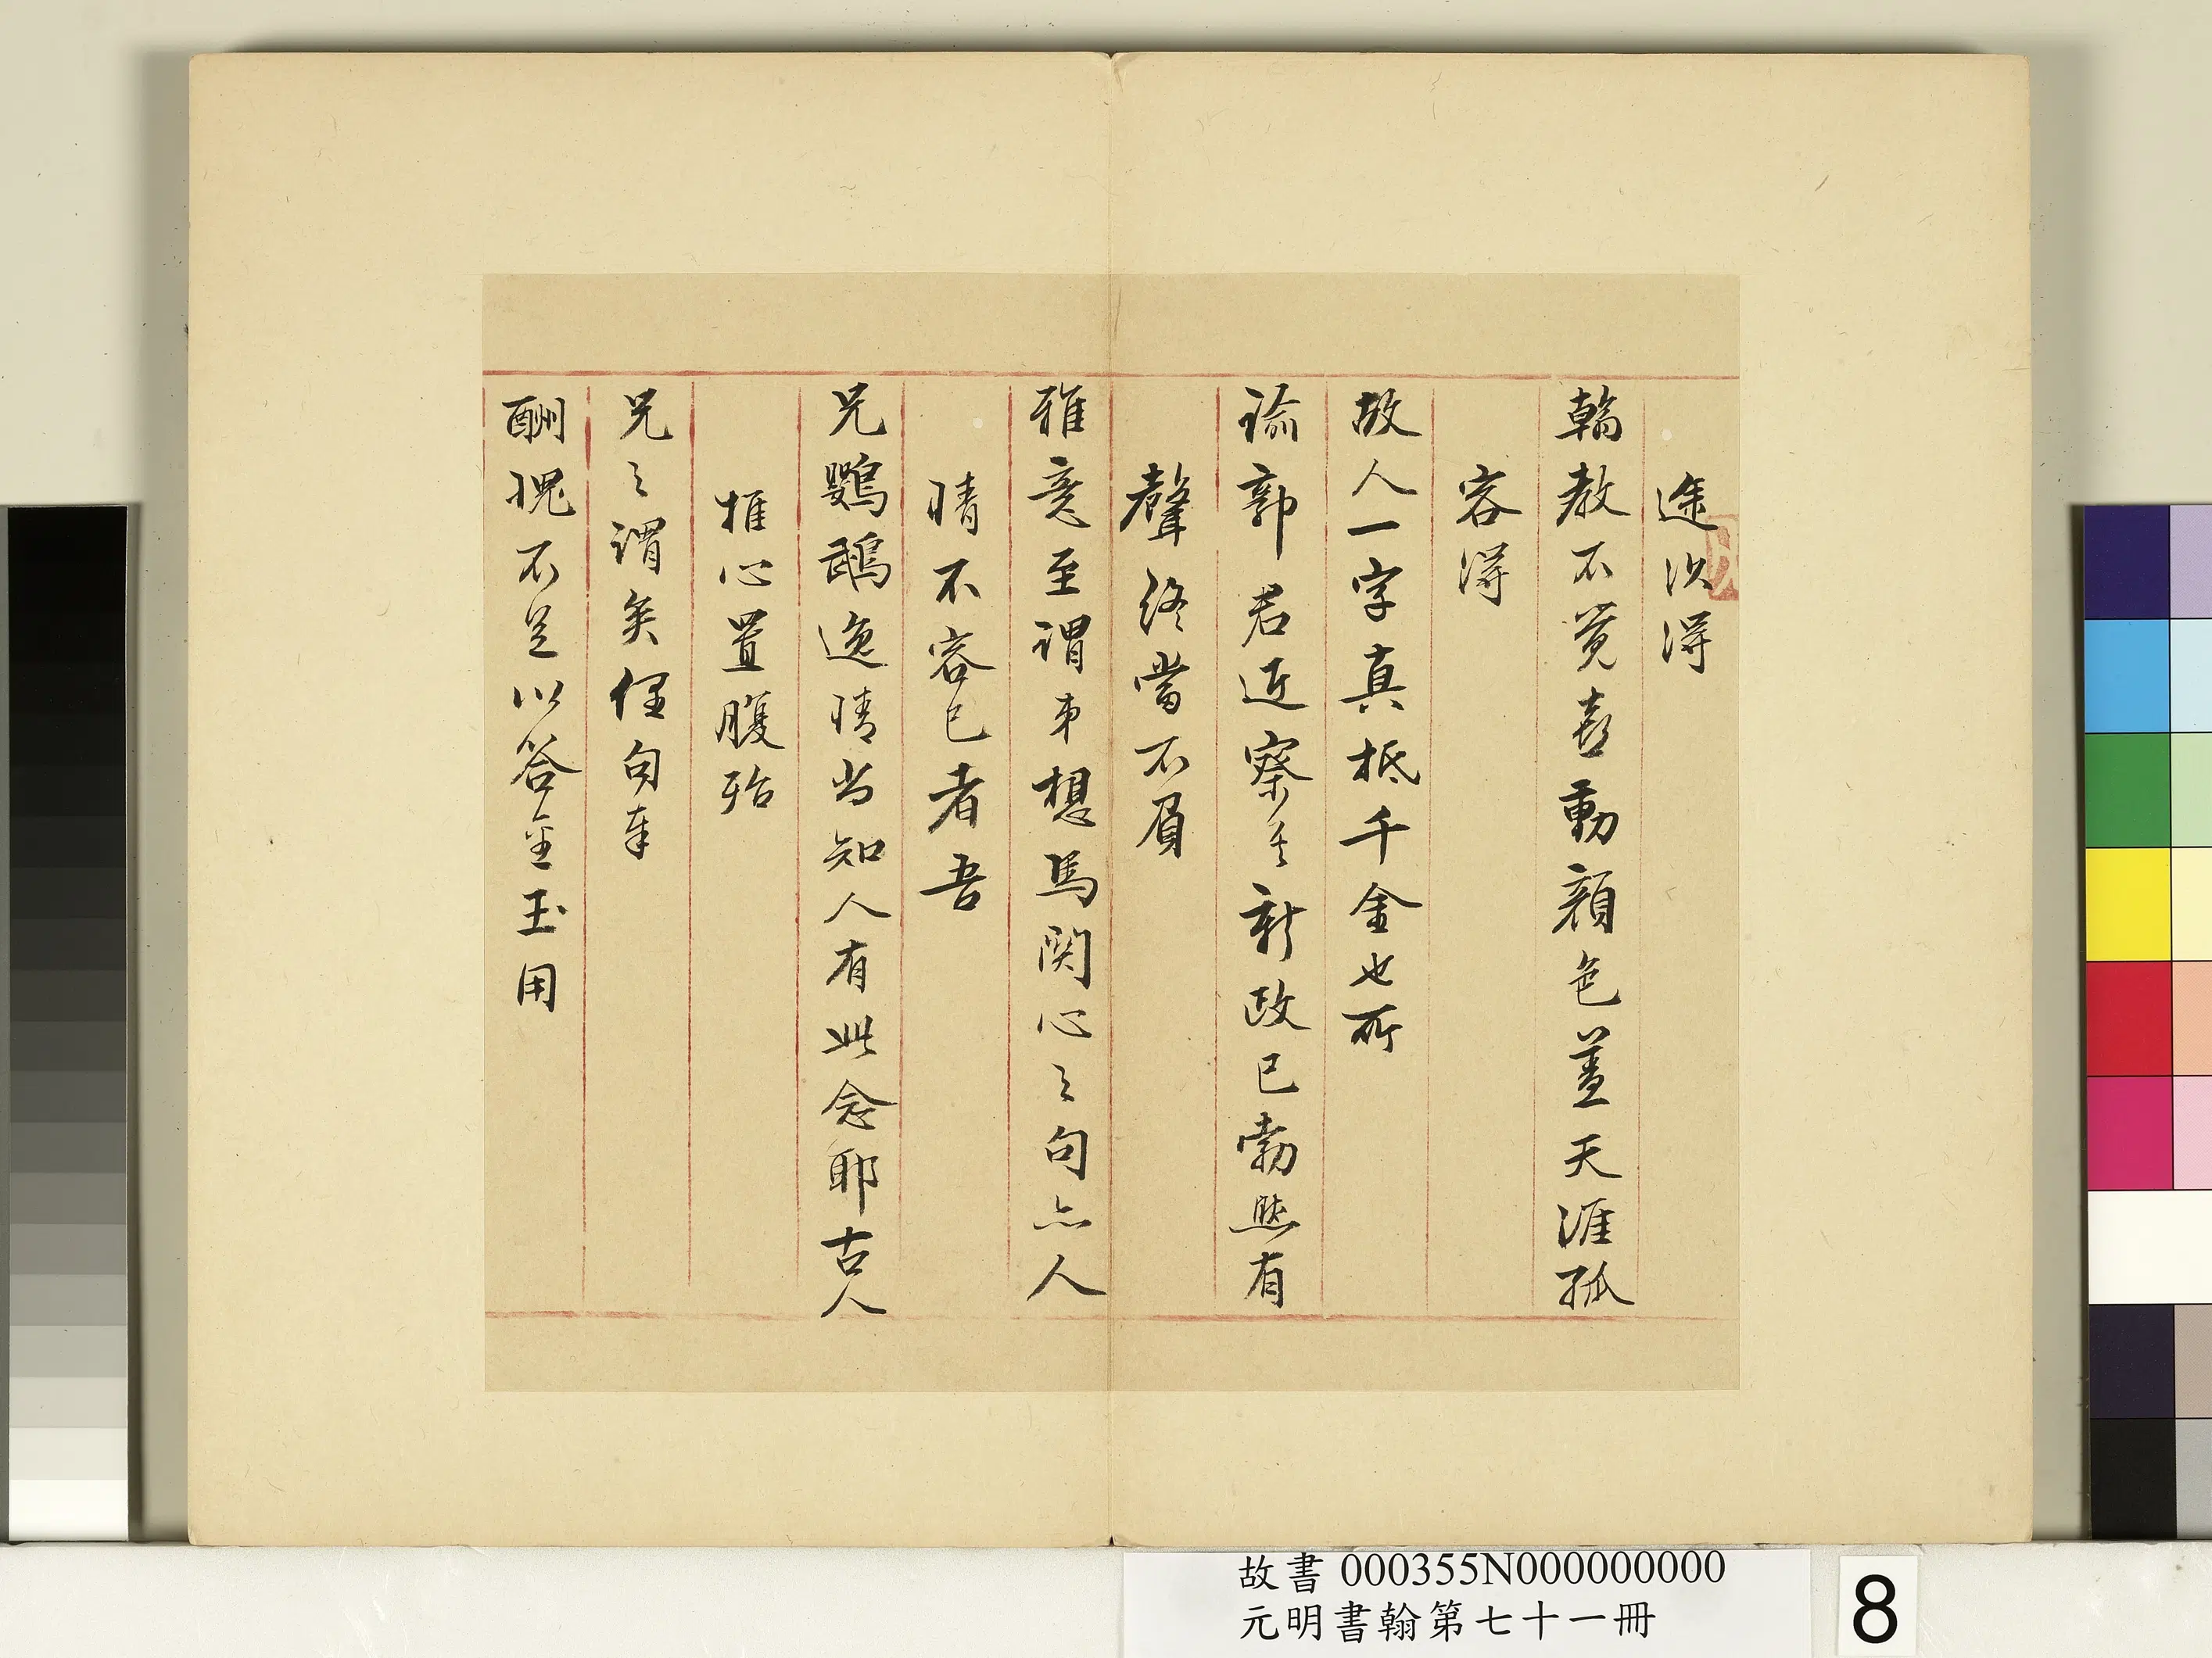 途次得
翰教不覺喜動顏色蓋天涯孤
客得
故人一字真抵千金也所
諭郭君近察其新政已勃然有
聲終當不負
雅意至謂弟想馬關心之句亦人
情不容已者吾
兄鸚鵡逸情當知人有此念耶古人
推心置腹殆
兄之謂矣俚句奉
酬愧不足以答金玉用
故書000355N000000000
元明書翰第七十一冊
8